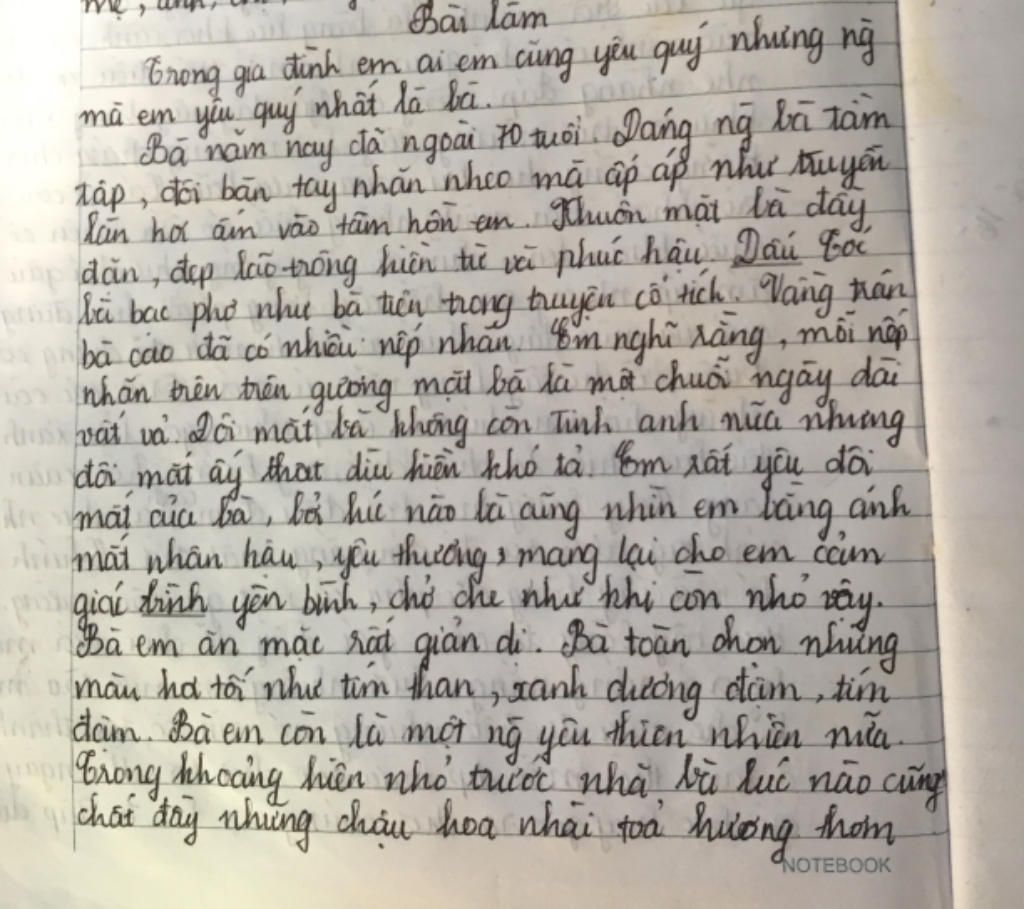 Bài làm
Trong gia đình em ai em cũng yêu quý nhưng ng
mà em yêu quý nhất là bà.
Bà năm nay đã ngoài 70 tuổi. Dáng ng bà tầm
tập, đôi bàn tay nhăn nheo mà ấp áp như truyền
lần hơi ấm vào tâm hồn em. Khuôn mặt bà đầy
đặn, đẹp lão trông hiền từ và phúc hậu Dấu tóc
bà bạc phơ như bà tiên trong truyện cổ tích. Vầng trán
bà cao đã có nhiều nếp nhăn. Em nghĩ rằng, mỗi nếp
nhăn trên trên gương mặt bà là một chuỗi ngày dài
vất vả. Đôi mắt bà không còn tinh anh nữa nhưng
đôi mắt ấy thật dịu hiền khó tả. Em rất yêu đôi
mắt của bà, bởi húc nào bà cũng nhìn em bằng ánh
mắt nhân hậu, yêu thương, mang lại cho em cảm
giác bình yên bình, chở che như khi còn nhỏ vậy.
Bà em ăn mặc rất giản dị. Bà toàn chọn những
màu hơi tối như tím than, xanh dương đậm, tím
đậm. Bà em còn là một ng yêu thiên nhiên nữa.
Trong khoảng hiên nhỏ trước nhà bà lúc nào cũng
chất đầy những chậu hoa nhài toả hương thơm
NOTEBOOK